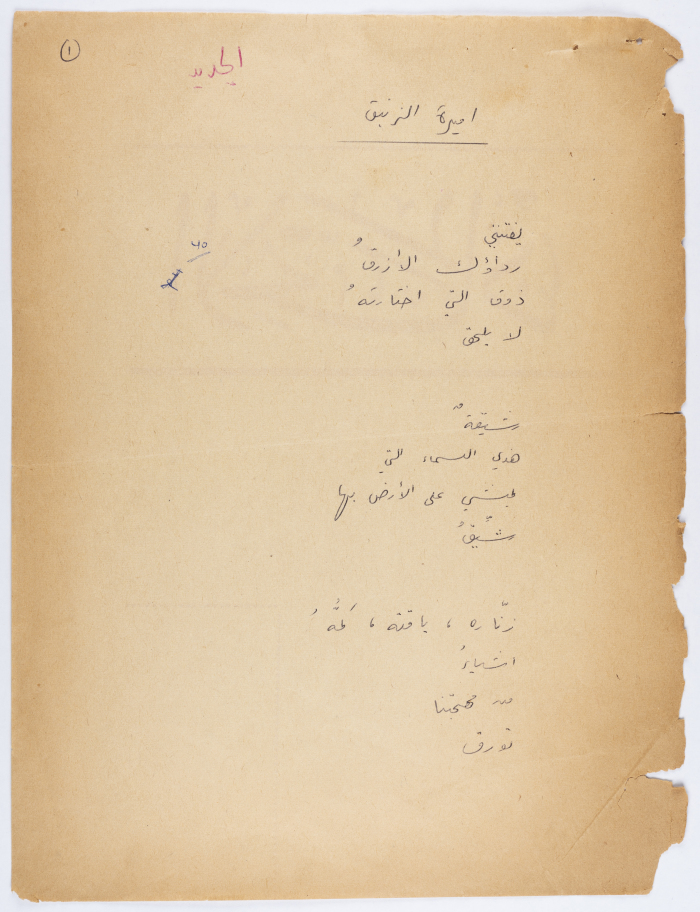 ١
الجديد
اميرة الزنبق
يفتنني
رداؤك الأزرقُ
ذوق التي اختارتهُ
لا يلحق
رشيقةٌ
هذي السماء التي
يمشي على الأرض بها
زنّاره ، ياقته ، كمُّهُ
اشياءُ
من مهجتنا
تورق